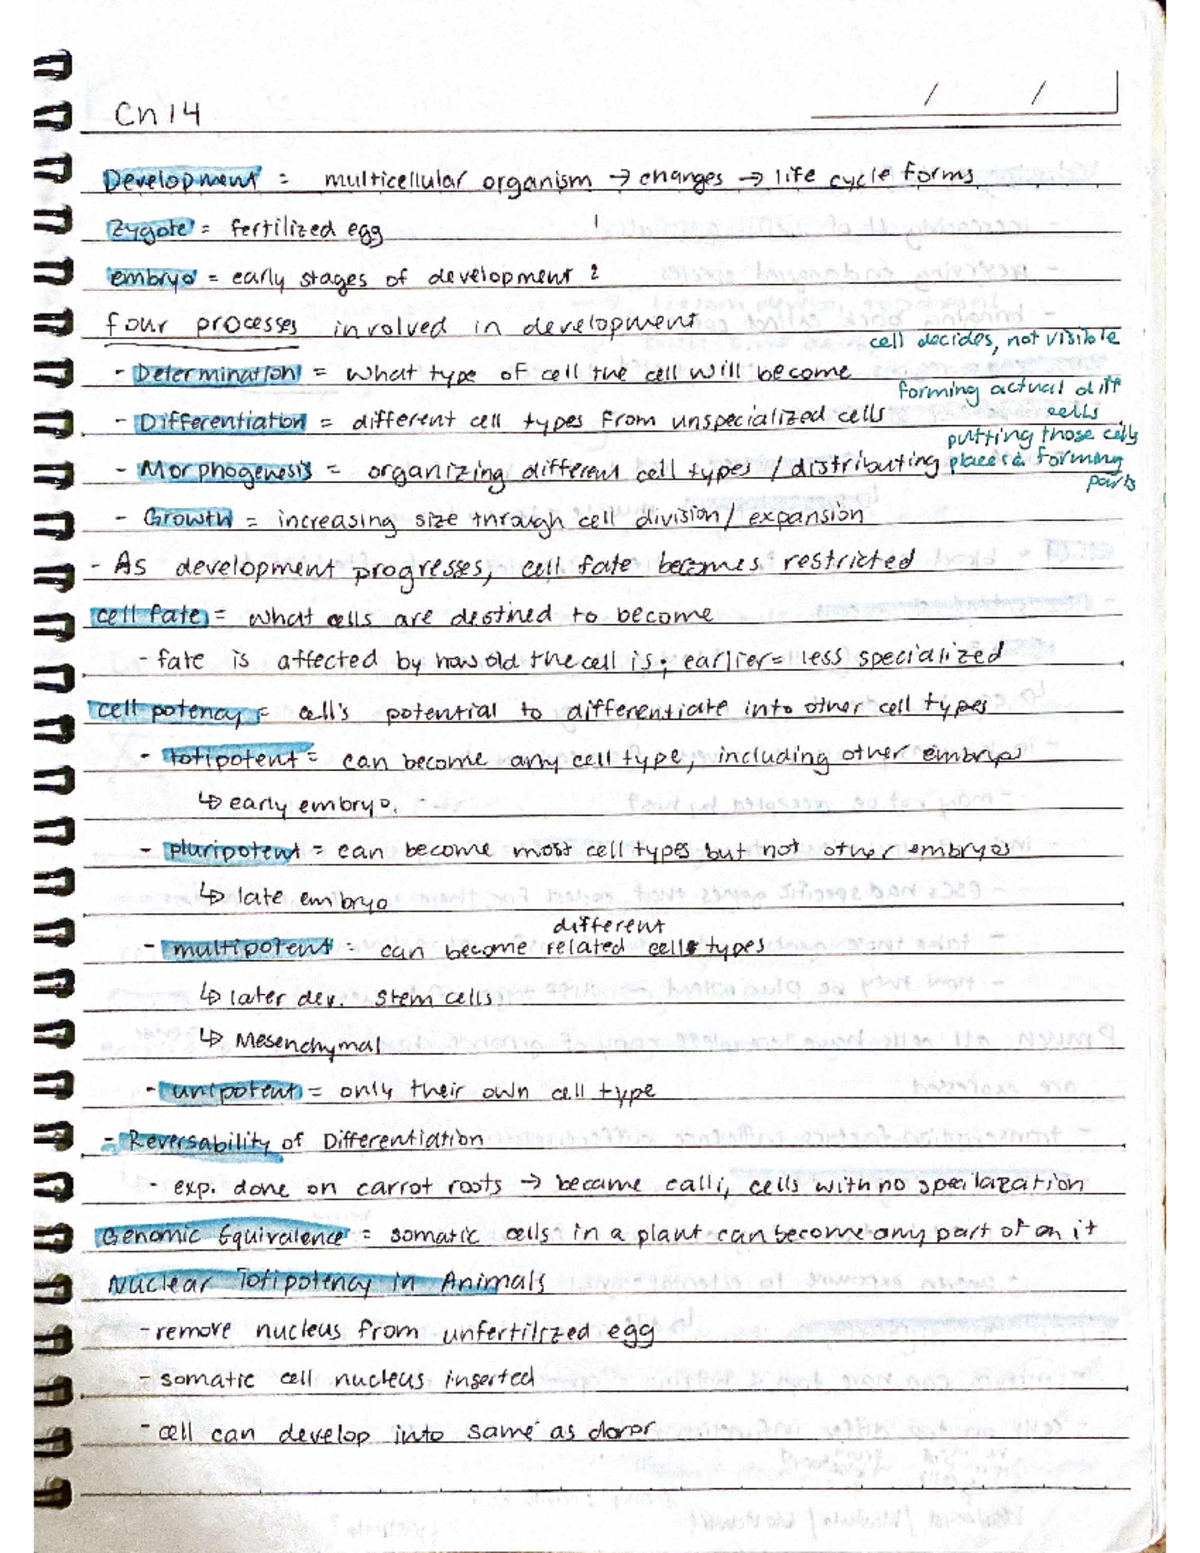 Ch 14
Development = multicellular organism → changes → life cycle forms
Zygote = fertilized egg 1
embryo = early stages of development 2
four processes involved in development
cell decides, not visible
- Determination = what type of cell the cell will become
forming actual diff
cells
- Differentiation = different cell types from unspecialized cells
putting those cells
- Morphogenesis = organizing different cell types / distributing
forming
parts
- Growth = increasing size through cell division / expansion
- As development progresses, cell fate becomes restricted
cell fate = what cells are destined to become
- fate is affected by how old the cell is; earlier = less specialized
cell potency = cell's potential to differentiate into other cell types
- totipotent = can become any cell type, including other embryo
↳ early embryo.
- pluripotent = can become most cell types but not other embryos
↳ late embryo
different
- multipotent = can become related cell types
↳ later dev. stem cells
↳ Mesenchymal
- unipotent = only their own cell type
- Reversability of Differentiation
- exp. done on carrot roots → became calli, cells with no specilazation
Genomic Equivalence = somatic cells in a plant can become any part of it
Nuclear Totipotency in Animals
- remove nucleus from unfertilized egg
- somatic cell nucleus inserted
- cell can develop into same as donor